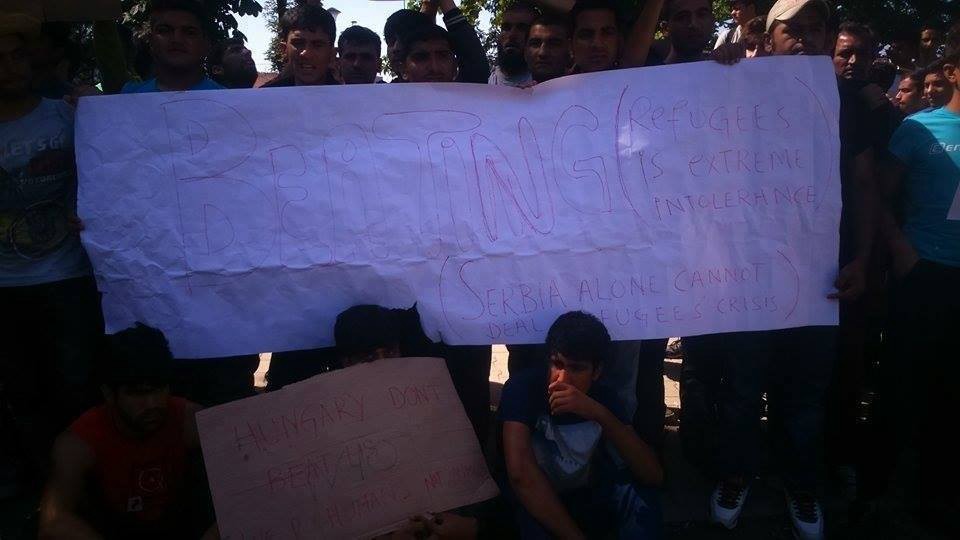 BEATING
(REFUGEES
IS EXTREME
INTOLERHANCE)
(SERBIA ALONE CANNOT
DEAL REFUGEES' CRISIS)
HUNGARY DON'T
BEAT US
HUMAN NOT
LET'S G